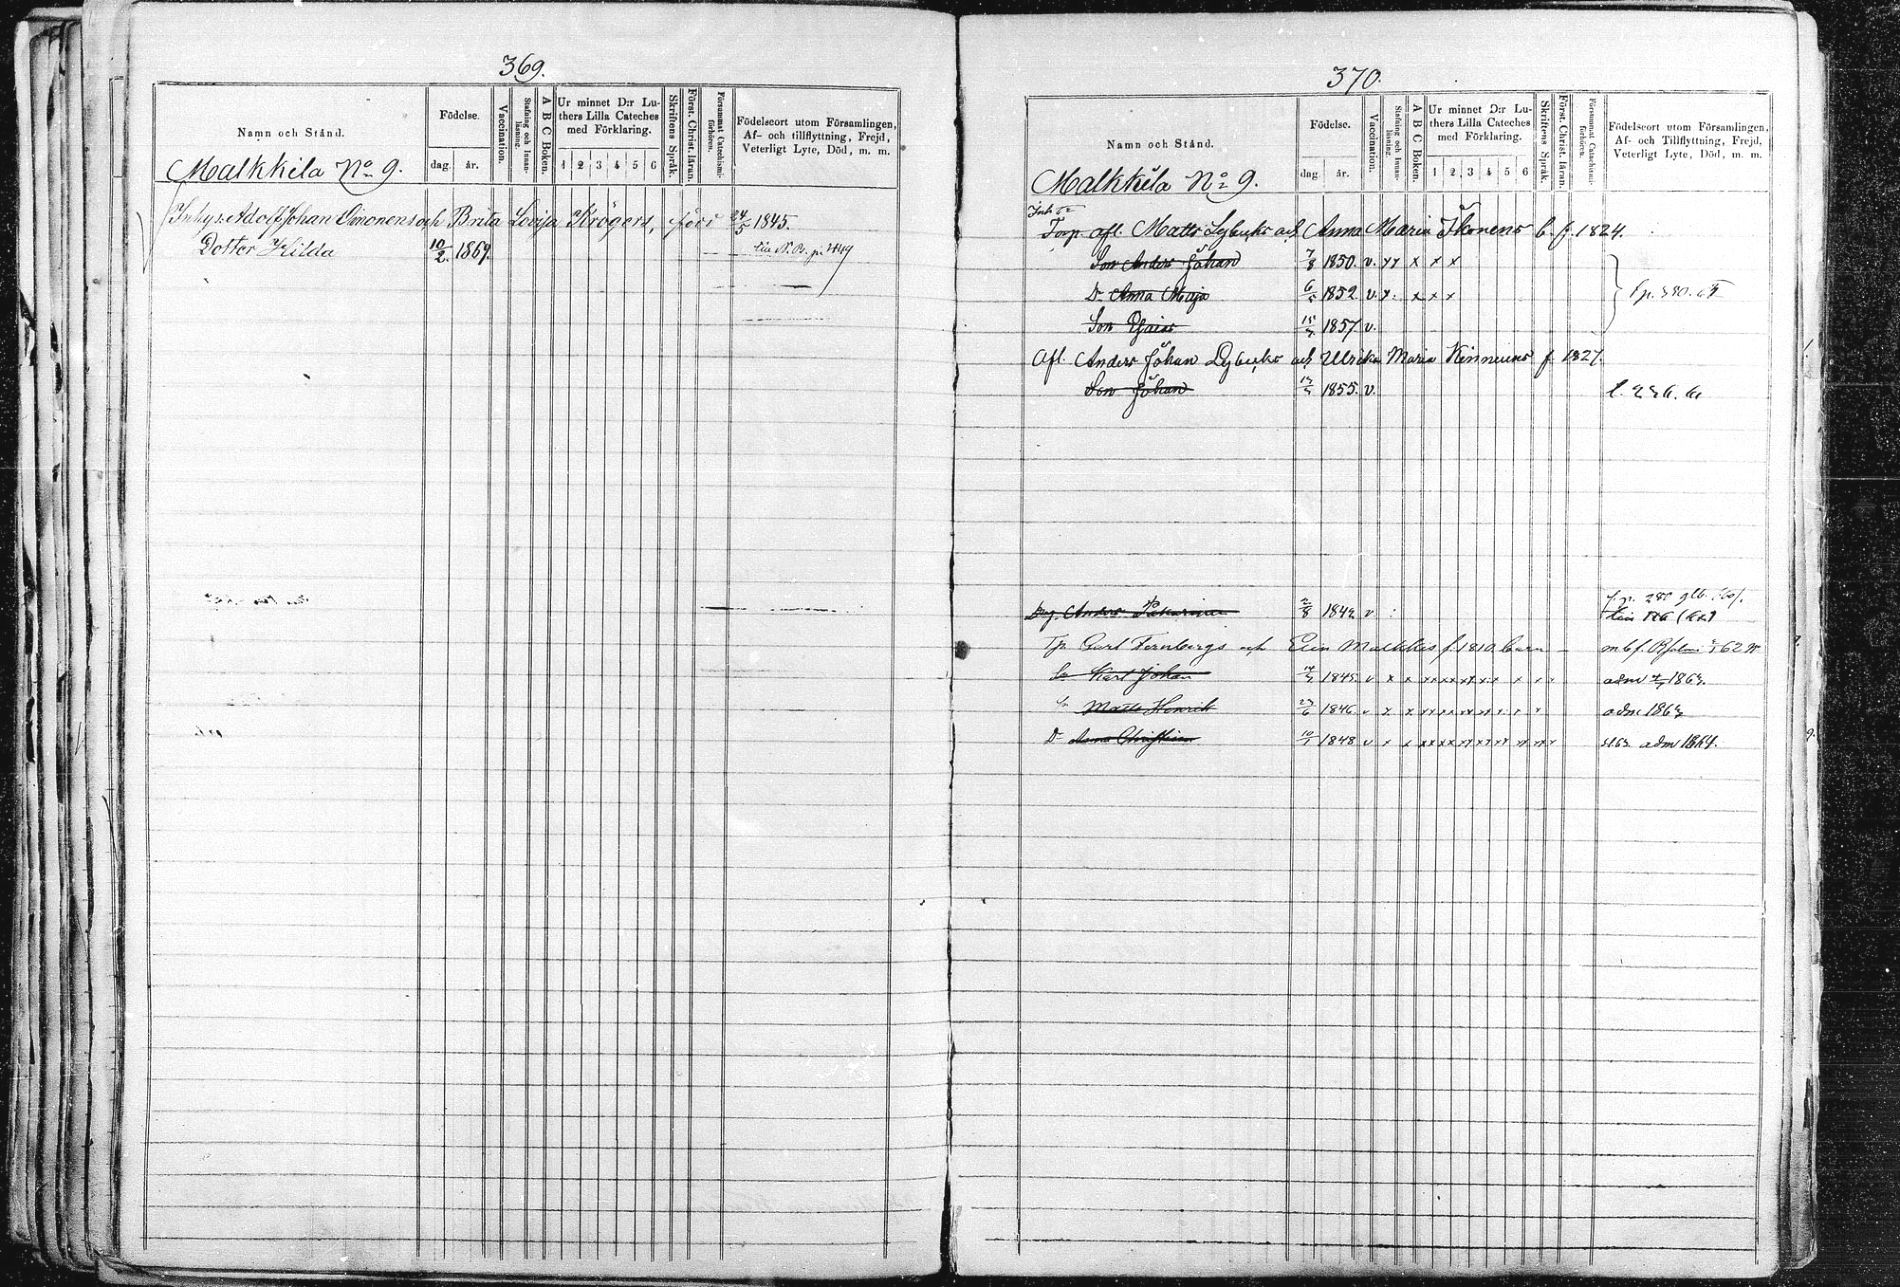 369.
Namn och Stånd.
Födelse.
dag. år.
Vaccination.
Stafning och Innan-läsning.
A B C Boken.
Ur minnet D:r Lu-
thers Lilla Cateches
med Förklaring.
1 2 3 4 5 6
Skriftens Språk.
Först. Christ. läran.
Försummat Catechismi-förhören.
Födelseort utom Församlingen,
Af- och tillflyttning, Frejd,
Veterligt Lyte, Död, m. m.
Malkkila No 9.
Inhys. Adolf Johan Simonens och Brita Lovisa Krögers, född 24/5 1845.
Dotter Hilda 10/2 1869.
370.
Namn och Stånd.
Födelse.
dag år.
Vaccination.
Stafning och Innan-läsning.
A B C Boken.
Ur minnet D:r Lu-
thers Lilla Cateches
med Förklaring.
1 2 3 4 5 6
Skriftens Språk.
Först. Christ. läran.
Försummat Catechismi-förhören.
Födelseort utom Församlingen,
Af- och Tillflyttning, Frejd,
Veterligt Lyte, Död, m. m.
Malkkila No 9.
Torp. afl. Matts och Anna Maria Ikonens b. f. 1824.
Son Anders Johan 7/8 1850. v. x x x x x
D. Anna Maja 1852 v. x. x x x
Son 1857 v.
Afl. Anders Johan och Ulrika Maria Kinnuns f 1827.
Son Johan 1855. v.
Anders 1842 v
Carl Fernbergs och Elin Malkkis f. 1810 barn
Karl Johan 1845 v x x adm 1863.
Matts Henrik 23/6 1846 v x x adm 1863
D. Anna Christina 10/1 1848 v x x adm 1864.